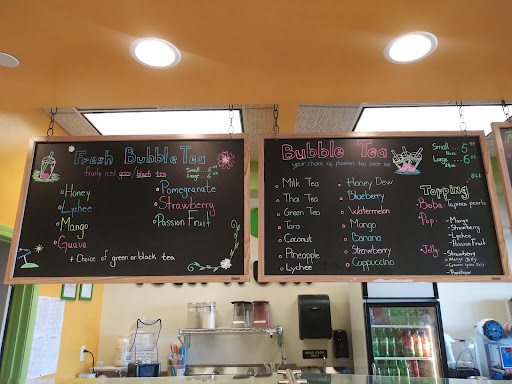 Fresh Bubble Tea
fruity iced green/black tea
Small
Large
Honey
Lychee
Mango
Guava
Pomegranate
Strawberry
Passion Fruit
+ Choice of green or black tea
Bubble Tea
your choice of flavored tea over ice
Small 5
Large 6
Milk Tea
Thai Tea
Green Tea
Taro
Coconut
Pineapple
Lychee
Honey Dew
Blueberry
Watermelon
Mango
Banana
Strawberry
Cappuccino
Topping
Boba: tapioca pearls
Pop: - Mango
- Strawberry
- Lychee
- Passion Fruit
Jelly: - Strawberry
- Mango Jelly